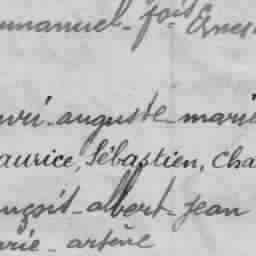 mmanuel - fois Ernes
nri - auguste - marie
aurice, Sébastien, Cha
nçois - albert - jean
arie - arsène